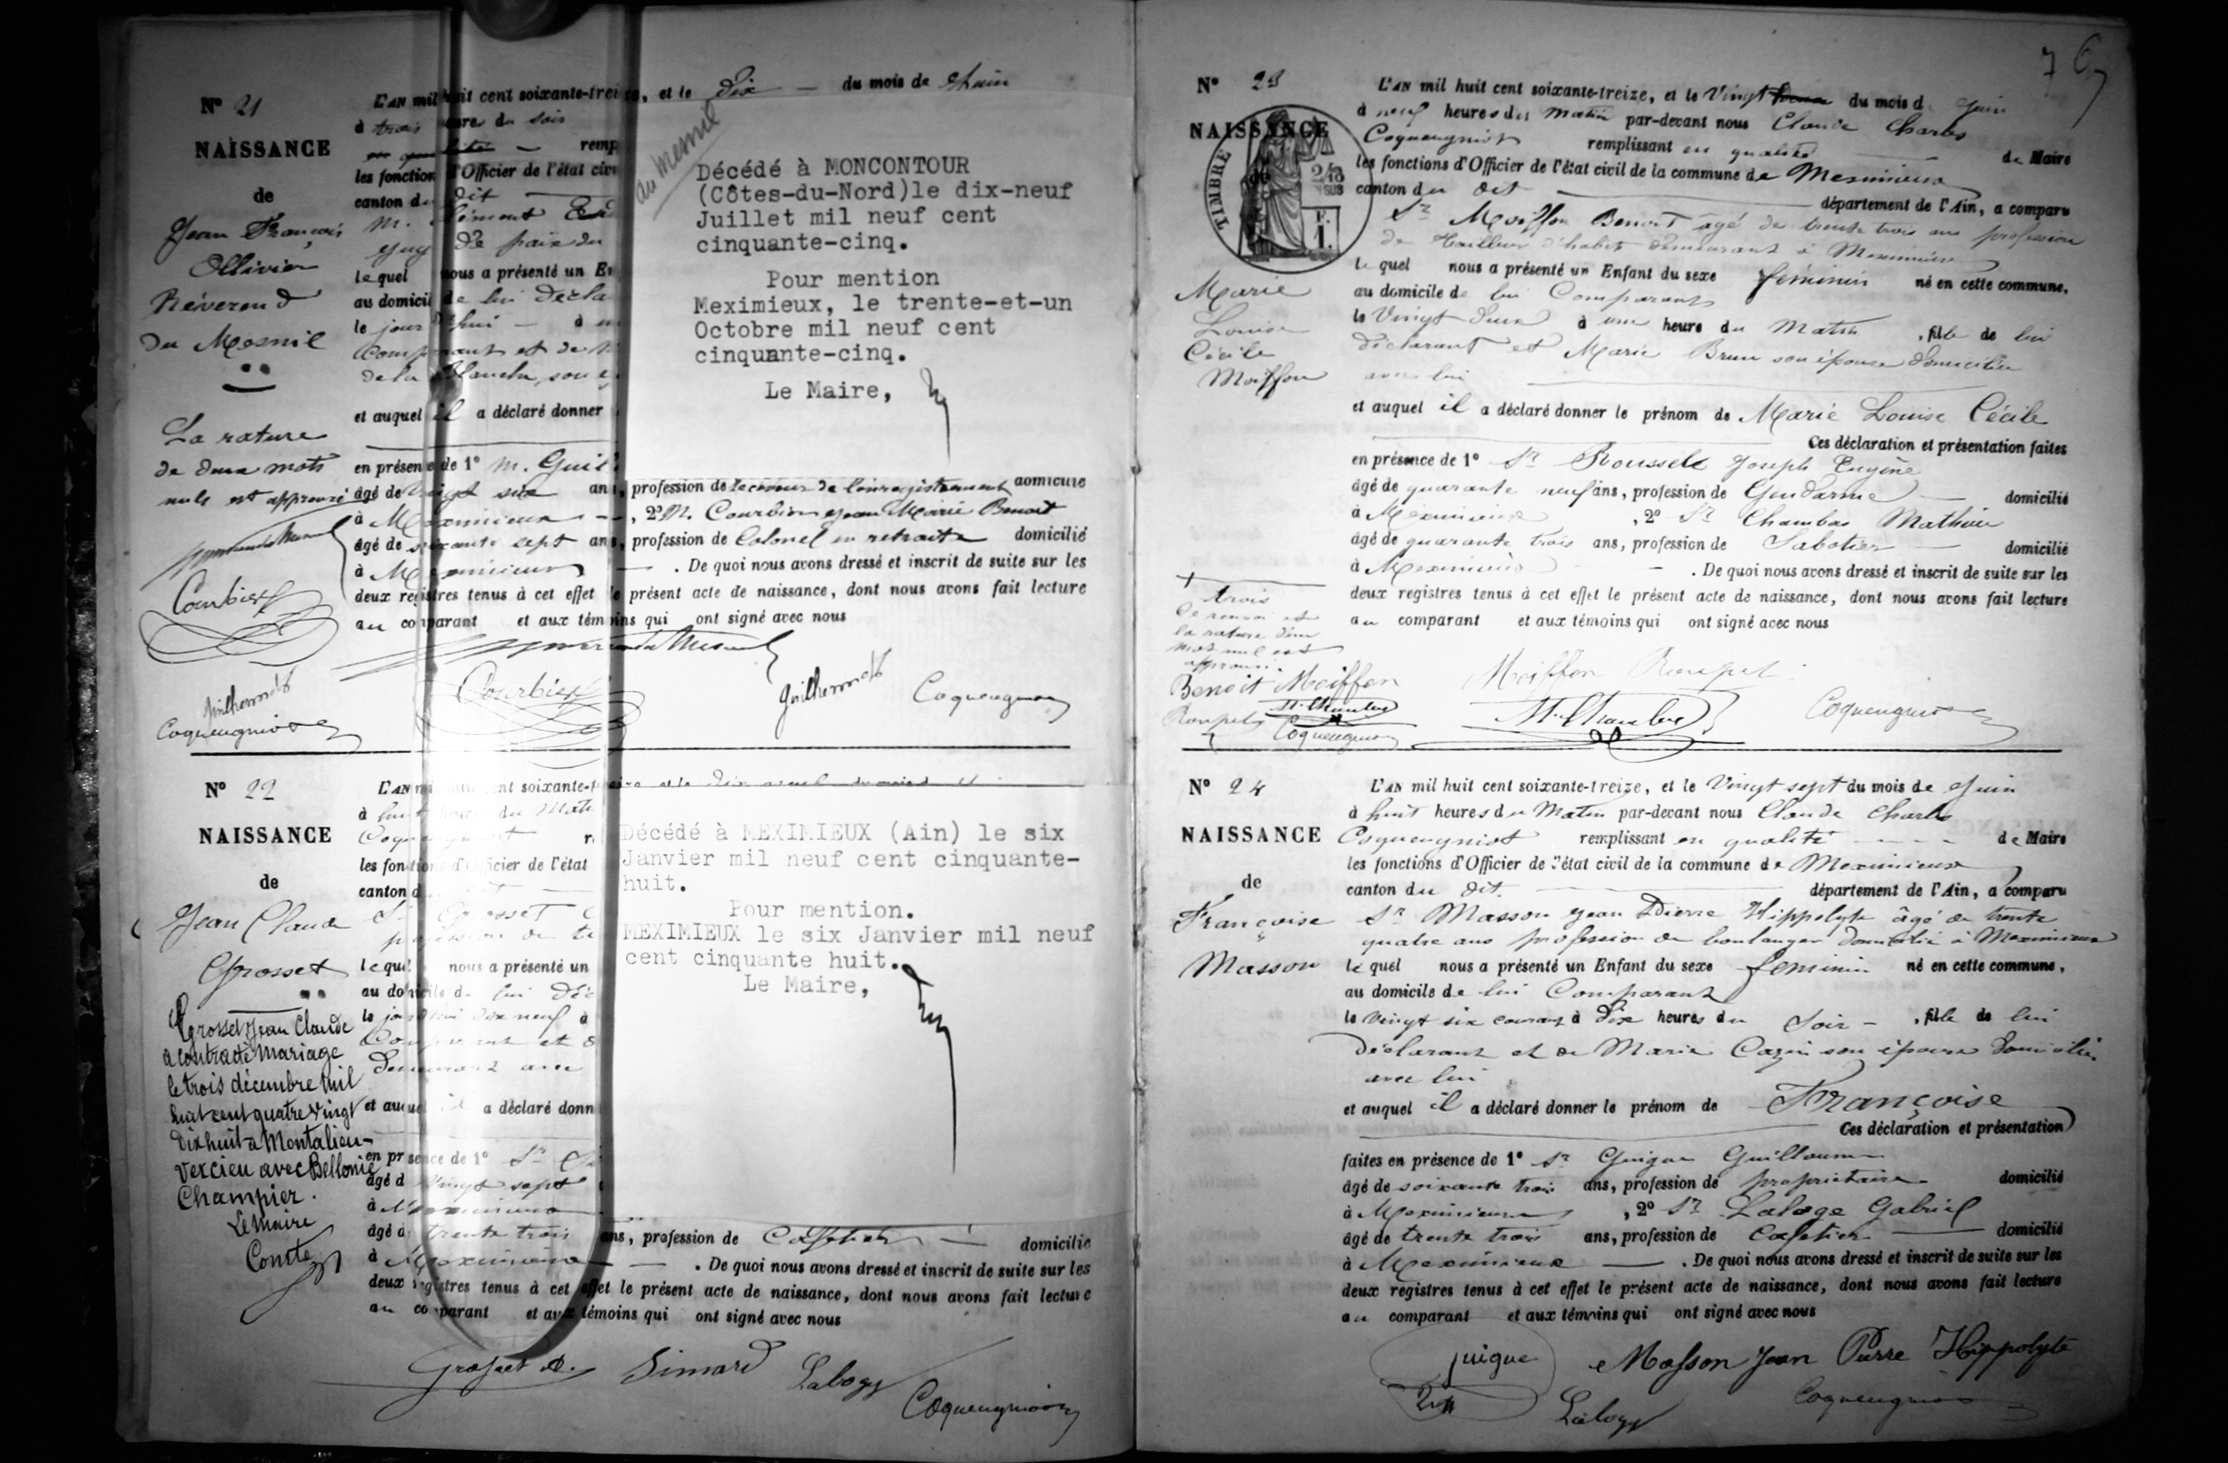 N° 21
NAISSANCE
de
Jean François
Ollivier
Révérend
du Mesnil
La rature
de deux mots
nuls est approuvé
Courbier
Guilhermet
Coqueugniot
L'AN mil huit cent soixante-treize, et le dix du mois de Juin
à trois heures du soir
en qualité remp
les fonctions d'Officier de l'état civ
canton du dit
M. Clément
Juge de paix du
lequel nous a présenté un En
au domicile de lui décla
le jour d'hui à
comparant et de
de la Blanche, son é
et auquel il a déclaré donner
en présence de 1° M. Guil
âgé de vingt six ans, profession de receveur de l'enregistrement domicilié
à Meximieux, 2° M. Courbier Jean Marie Benoit
âgé de soixante sept ans, profession de Colonel en retraite domicilié
à Meximieux. De quoi nous avons dressé et inscrit de suite sur les
deux registres tenus à cet effet le présent acte de naissance, dont nous avons fait lecture
au comparant et aux témoins qui ont signé avec nous
Courbier Guilhermet Coqueugniot
du Mesnil
Décédé à MONCONTOUR
(Côtes-du-Nord)le dix-neuf
Juillet mil neuf cent
cinquante-cinq.
Pour mention
Meximieux, le trente-et-un
Octobre mil neuf cent
cinquante-cinq.
Le Maire,
N° 22
NAISSANCE
de
Jean Claude
Grosset
Grosset Jean Claude
a contracté mariage
le trois décembre mil
huit cent quatre vingt
dix huit à Montalieu-
Vercieu avec Bellonie
Champier.
Le Maire
Comte
L'AN mil huit cent soixante-treize et le dix neuf du mois de
à huit heures du Mati
Coqueugniot
les fonctions d'Officier de l'état
canton du dit
Sr Grosset
profession de
lequel nous a présenté un
au domicile de lui déc
le jourd'hui dix neuf à
Comparant et
demeurant avec
et auquel il a déclaré donn
en présence de 1° Sr
âgé de vingt sept
à Meximieux
âgé de trente trois ans, profession de Cafetier domicilié
à Meximieux. De quoi nous avons dressé et inscrit de suite sur les
deux registres tenus à cet effet le présent acte de naissance, dont nous avons fait lecture
au comparant et aux témoins qui ont signé avec nous
Grosset Simard Laloge
Coqueugniot
Décédé à MEXIMIEUX (Ain) le six
Janvier mil neuf cent cinquante-
huit.
Pour mention.
MEXIMIEUX le six Janvier mil neuf
cent cinquante huit.
Le Maire,
76
N° 23
NAISSANCE
de
TIMBRE
Marie
Louise
Cécile
Moiffon
trois
le renvoi et
la rature d'un
mot nul est
approuvé.
Benoit Moiffon
M. Chambas
Coqueugniot
L'AN mil huit cent soixante-treize, et le Vingt du mois de Juin
à neuf heures du matin par-devant nous Claude Charles
Coqueugniot remplissant en qualité de Maire
les fonctions d'Officier de l'état civil de la commune de Meximieux
canton du dit département de l'Ain, a comparu
Sr Moiffon Benoit âgé de trente trois ans profession
de Tailleur d'habits demeurant à Meximieux
lequel nous a présenté un Enfant du sexe féminin né en cette commune,
au domicile de lui Comparant
le Vingt deux à une heure du Matin, fille de lui
déclarant et Marie Brun son épouse domiciliée
avec lui
et auquel il a déclaré donner le prénom de Marie Louise Cécile
Ces déclaration et présentation faites
en présence de 1° Sr Joseph Eugène
âgé de quarante neuf ans, profession de Gendarme domicilié
à Meximieux, 2° Sr Chambas Mathieu
âgé de quarante trois ans, profession de Sabotier domicilié
à Meximieux. De quoi nous avons dressé et inscrit de suite sur les
deux registres tenus à cet effet le présent acte de naissance, dont nous avons fait lecture
au comparant et aux témoins qui ont signé avec nous
Moiffon
M. Chambas Coqueugniot
N° 24
NAISSANCE
de
Françoise
Masson
L'AN mil huit cent soixante-treize, et le Vingt sept du mois de Juin
à huit heures du Matin par-devant nous Claude Charles
Coqueugniot remplissant en qualité de Maire
les fonctions d'Officier de l'état civil de la commune de Meximieux
canton du dit département de l'Ain, a comparu
Sr Masson Jean Pierre Hippolyte âgé de trente
quatre ans profession de boulanger domicilié à Meximieux
lequel nous a présenté un Enfant du sexe féminin né en cette commune,
au domicile de lui Comparant
le Vingt six courant à dix heures du Soir, fille de lui
déclarant et de Marie Cazin son épouse domiciliée
avec lui
et auquel il a déclaré donner le prénom de Françoise
Ces déclaration et présentation
faites en présence de 1° Sr Guigue Guillaume
âgé de soixante trois ans, profession de propriétaire domicilié
à Meximieux, 2° Sr Laloge Gabriel
âgé de trente trois ans, profession de Cafetier domicilié
à Meximieux. De quoi nous avons dressé et inscrit de suite sur les
deux registres tenus à cet effet le présent acte de naissance, dont nous avons fait lecture
au comparant et aux témoins qui ont signé avec nous
guigue Masson Jean Pierre Hippolyte
Laloge Coqueugniot